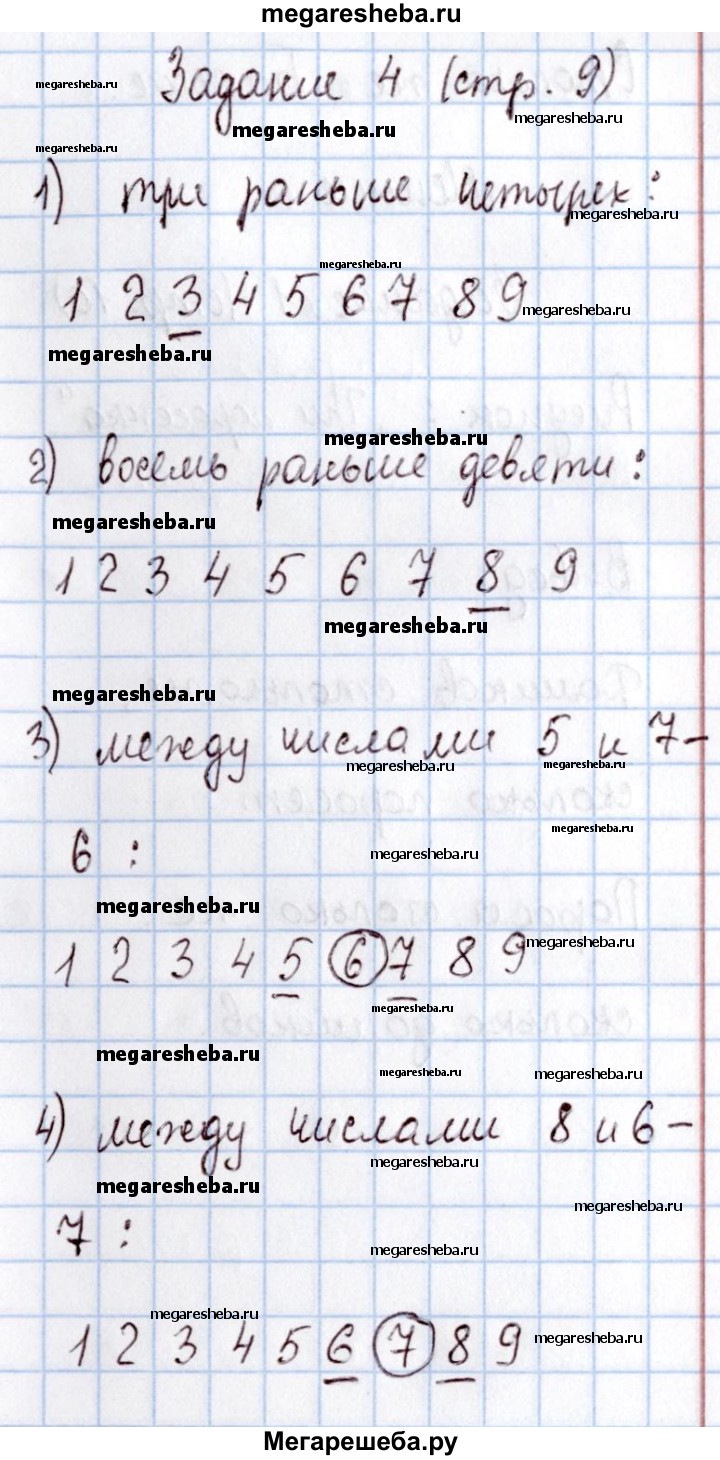 megaresheba.ru
megaresheba.ru
Задание 4 (стр. 9)
megaresheba.ru
megaresheba.ru
megaresheba.ru
1) три раньше четырех:
megaresheba.ru
megaresheba.ru
1 2 3 4 5 6 7 8 9
megaresheba.ru
megaresheba.ru
megaresheba.ru
2) восемь раньше девяти:
megaresheba.ru
1 2 3 4 5 6 7 8 9
megaresheba.ru
megaresheba.ru
3) между числами 5 и 7 –
megaresheba.ru
megaresheba.ru
megaresheba.ru
6 :
megaresheba.ru
megaresheba.ru
1 2 3 4 5 6 7 8 9
megaresheba.ru
megaresheba.ru
megaresheba.ru
megaresheba.ru
megaresheba.ru
4) между числами 8 и 6 –
megaresheba.ru
megaresheba.ru
megaresheba.ru
7 :
megaresheba.ru
megaresheba.ru
1 2 3 4 5 6 7 8 9
megaresheba.ru
Мегарешеба.ру